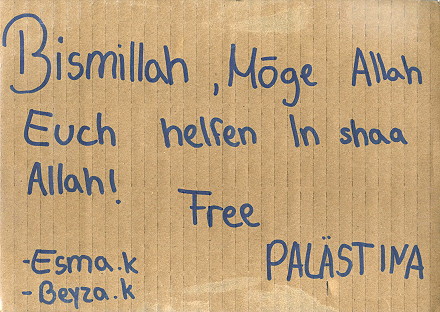 Bismillah, Möge Allah
Euch helfen In shaa
Allah!
Free
PALÄSTINA
-Esma.k
-Beyza.k